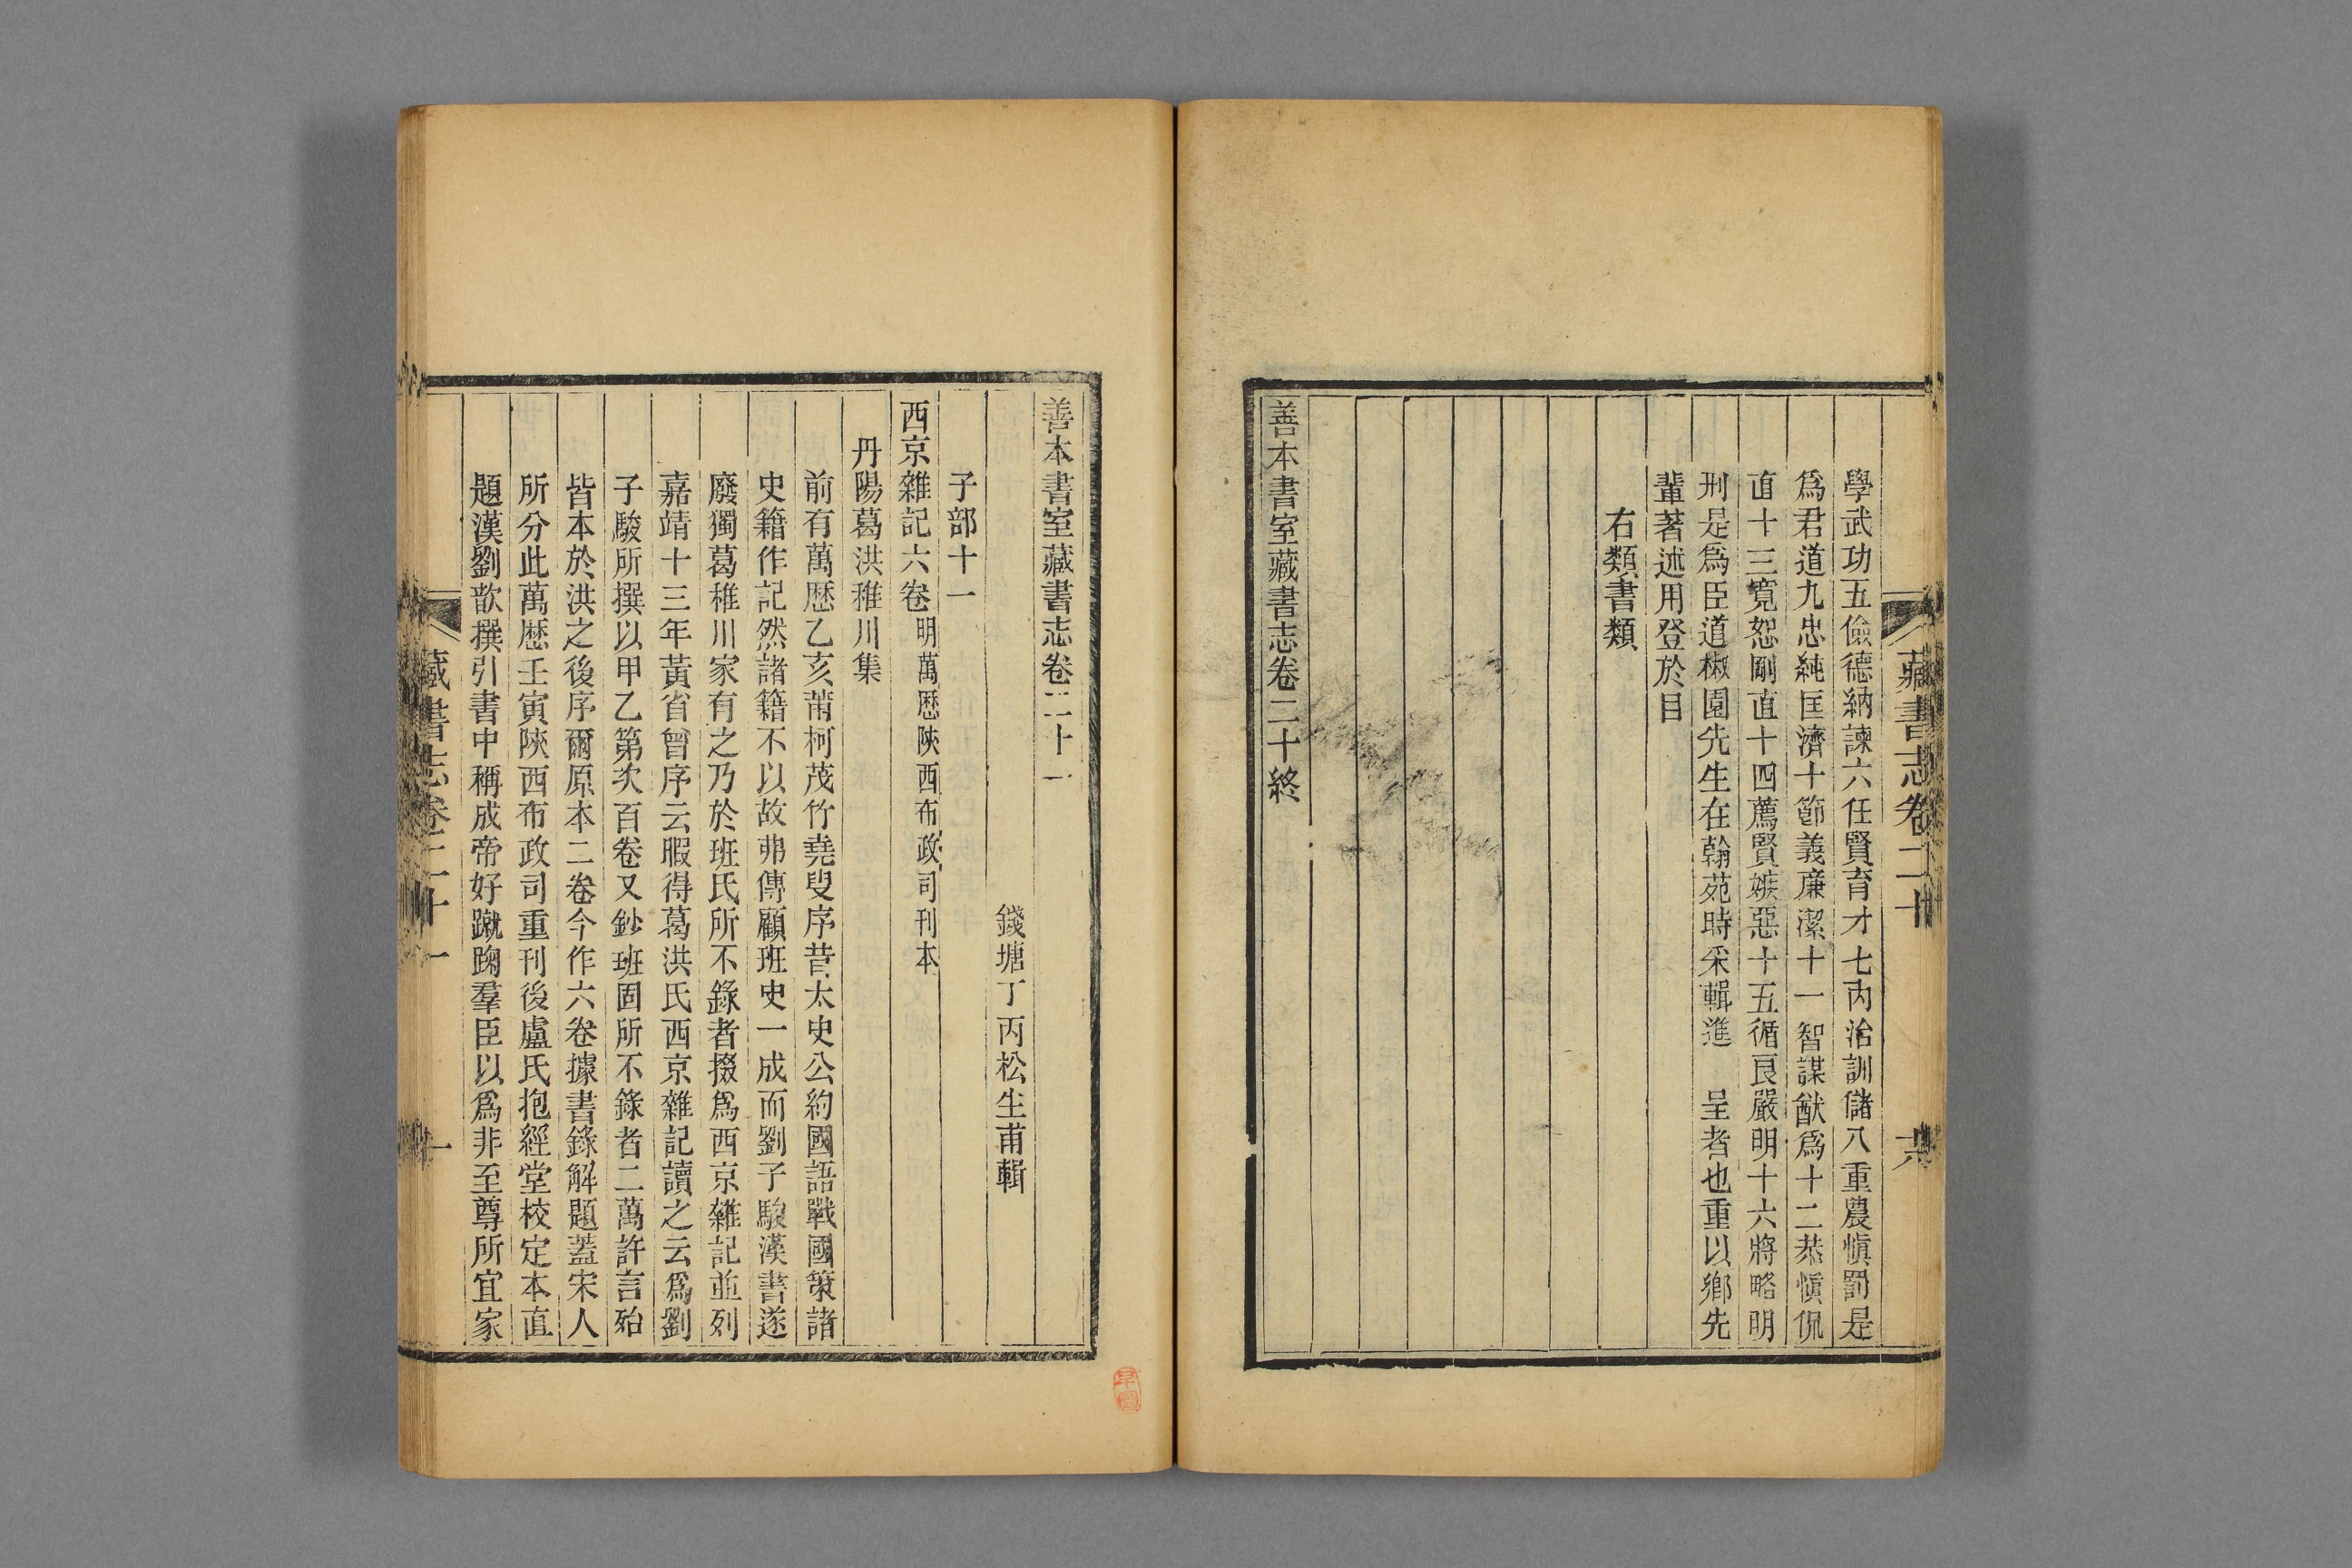 藏書志卷二十
六
學武功五儉德納諫六任賢育才七内治訓儲八重農愼罰是
爲君道九忠純匡濟十節義廉潔十一智謀猷爲十二恭愼侃
直十三寬恕剛直十四薦賢嫉惡十五循良嚴明十六將略明
刑是爲臣道椒園先生在翰苑時采輯進　呈者也重以鄉先
輩著述用登於目
右類書類
善本書室藏書志卷二十終
善本書室藏書志卷二十一
錢塘丁丙松生甫輯
子部十一
西京雜記六卷明萬歷陝西布政司刊本
丹陽葛洪稚川集
前有萬歷乙亥莆柯茂竹堯叟序昔太史公約國語戰國策諸
史籍作記然諸籍不以故弗傳顧班史一成而劉子駿漢書遂
廢獨葛稚川家有之乃於班氏所不錄者掇爲西京雜記並列
嘉靖十三年黃省曾序云暇得葛洪氏西京雜記讀之云爲劉
子駿所撰以甲乙第次百卷又鈔班固所不錄者二萬許言殆
皆本於洪之後序爾原本二卷今作六卷據書錄解題蓋宋人
所分此萬歷壬寅陝西布政司重刊後盧氏抱經堂校定本直
題漢劉歆撰引書中稱成帝好蹴踘羣臣以爲非至尊所宜家
藏書志卷二十一
一
早圖